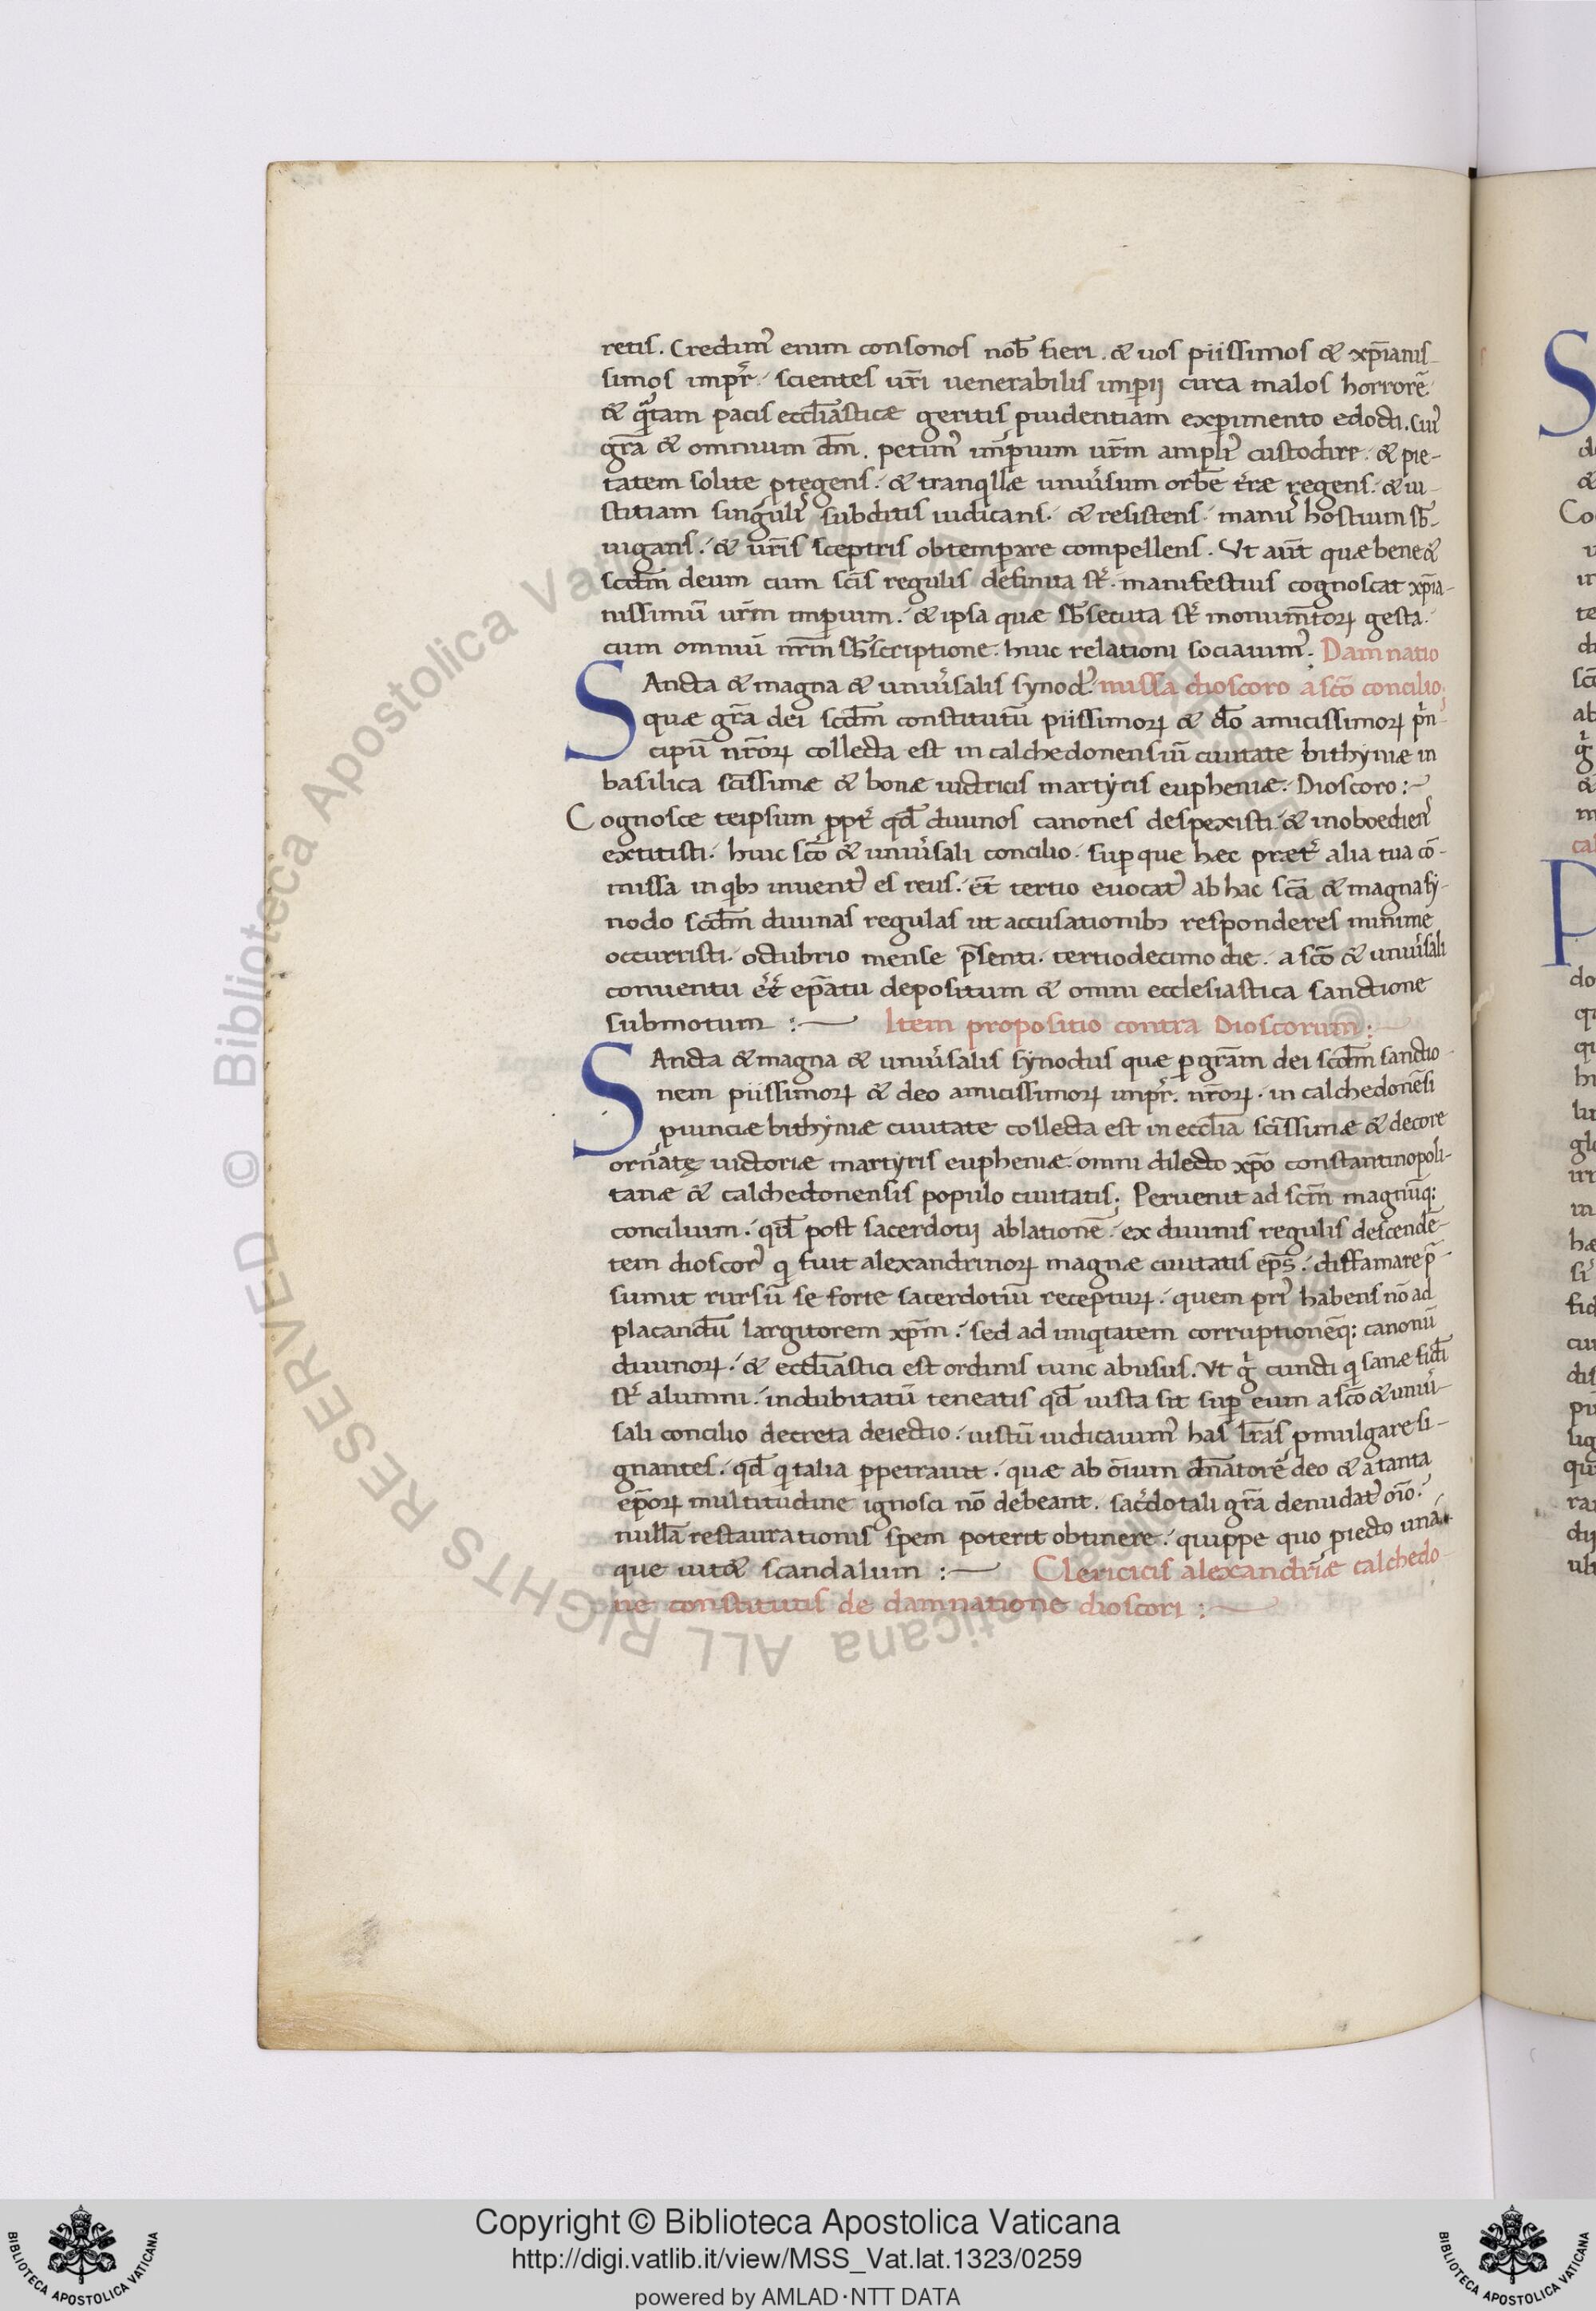 retis. Credim᷒ enim consonos nob̄ fieri. & uos piissimos & xp̄ianis-
simos impr̄. scientes ur̄i uenerabilis imperij circa malos horrorē.
& q̄tam pacis eccl̄iasticæ geritis ꝓuidentiam experimento edocti. Cui᷒
gr̄a & omnium dm̄. petim᷒ imꝑium ur̄m ampli᷒ custodire. & pie-
tatem solite ꝓtegens. & tranqllæ uniu̓sum orbē tr̓æ regens. & iu-
stitiam singulis subditis iudicans. & resistens manus hostium sb̄-
iugans. & ur̄is sceptris obtemperare compellens. Ut aut̄ quæ bene &
scdm̄ deum cum sc̄is regulis definita st̄. manifestius cognoscat xp̄ia-
nissimū ur̄m imperium. & ipsa quæ sb̄secuta st̄ monum̄toꝝ gesta.
cum omniū nr̄m sb̄scriptione. huic relationi sociauim᷒. Damnatio
SAncta & magna & uniu̓salis synod᷒. missa dioscoro a sc̄o concilio;
quæ gr̄a dei scdm̄ constitutū piissimoꝝ & do̅ amicissimoꝝ prin-
cipū nr̄oꝝ collecta est in calchedonensiū ciuitate bithyniæ in
basilica sc̄issimæ & bonæ uictricis martyris eupheniæ. Dioscoro:~
Cognosce teipsum ꝓpt̓ qd̄ diuinos canones despexisti. & inoboediens
extitisti. huic sc̄o & uniu̓sali concilio. suꝑque hæc præt̓ alia tua cō-
missa in qb; inuent᷒ es reus. et̄ tertio euocat᷒ ab hac sc̄a & magna sy-
nodo scdm̄ diuinas regulas ut accusationib; responderes minime
occurristi. octubrio mense p̄senti. tertiodecimo die. a sc̄o & uniu̓sali
conuentu ee̓ ep̄atu depositum & omni ecclesiastica sanctione
submotum :— Item propositio contra Dioscorum :—
SAncta & magna & uniu̓salis synodus quæ ꝑ gr̄am dei scdm̄ sanctio-
nem piissimoꝝ & deo amicissimoꝝ impr̄. nr̄oꝝ. in calchedonēsi
ꝓuinciæ bithyniæ ciuitate collecta est in eccl̄ia sc̄issimæ & decore
ornatę uictoriæ martyris eupheniæ. omni dilecto xp̄o constantinopoli-
tanæ & calchedonensis populo ciuitatis; Peruenit ad scm̄ magnūq;
concilium. qd̄ post sacerdotij ablationē. ex diuinis regulis descendē-
tem dioscor᷒ qi fuit alexandrinoꝝ magnæ ciuitatis ep̄s. diffamare p̄-
sumit rursū se forte sacerdotiū recepturꝝ. quem pri᷒ habens nō ad
placandū largitorem xp̄m. sed ad iniqitatem corruptionēq; canonū
diuinoꝝ. & eccl̄iastici est ordinis tunc abusus. Ut gͥ cuncti qi sanæ fidei
st̄ alumni. indubitatū teneatis qd̄ iusta sit suꝑ eum a sc̄o & uniu̓-
sali concilio decreta deiectio. iustū iudicauim᷒ has lr̄as ꝓmulgare si-
gnantes. qd̄ qi talia ꝑpetrauit. quæ ab oīum dn̄atorē deo & a tanta
ep̄oꝝ multitudine ignosci nō debeant. sac̓dotali gr̄a denudat᷒ oīo.
nullā restaurationis spem poterit obtinere. quippe quo ꝓiecto una-
que uitæ scandalum :— Clericicis alexandriæ calchedo-
ne constitutis de damnatione dioscori :—
Copyright © Biblioteca Apostolica Vaticana
http://digi.vatlib.it/view/MSS_Vat.lat.1323/0259
powered by AMLAD·NTT DATA